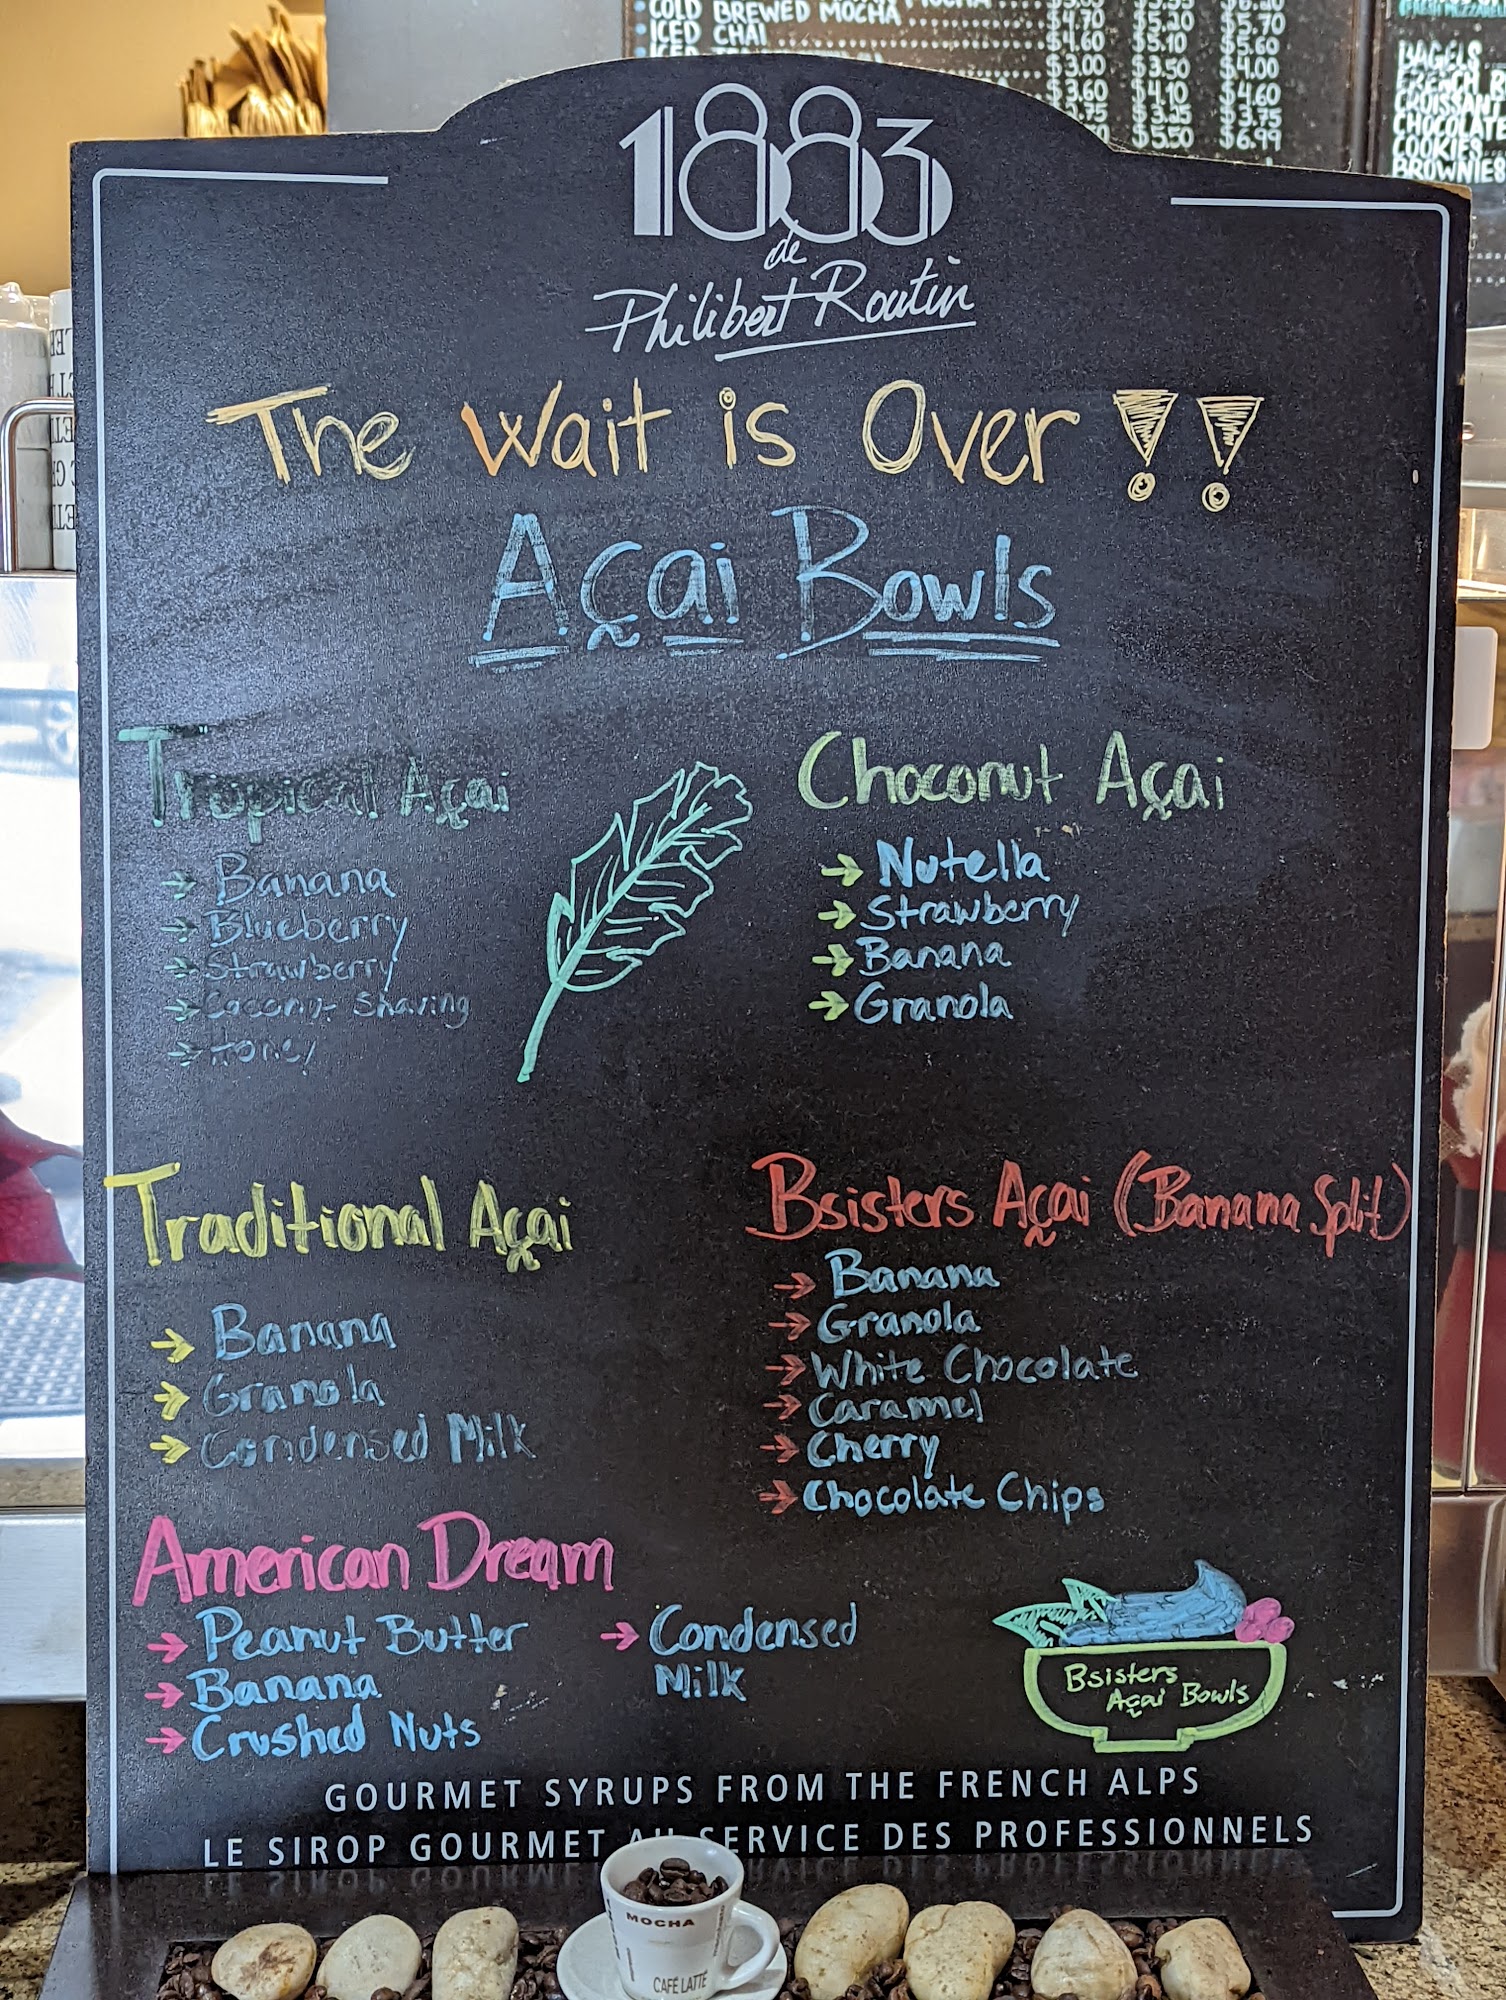 COLD BREWED MOCHA $4.70 $5.20 $5.70
ICED CHAI $4.60 $5.10 $5.60
ICED $3.00 $3.50 $4.00
$3.60 $4.10 $4.60
$5.50 $6.99
BAGELS
FRENCH
CROISSANT
CHOCOLATE
COOKIES
BROWNIES
1883
de
Philibert Routin
The Wait is Over !!
Açai Bowls
Tropical Açai
→ Banana
→ Blueberry
→ Strawberry
→ Coconut Shaving
→ Honey
Choconut Açai
→ Nutella
→ Strawberry
→ Banana
→ Granola
Traditional Açai
→ Banana
→ Granola
→ Condensed Milk
Bsisters Açai (Banana Split)
→ Banana
→ Granola
→ White Chocolate
→ Caramel
→ Cherry
→ Chocolate Chips
American Dream
→ Peanut Butter
→ Banana
→ Crushed Nuts
→ Condensed
Milk
Bsisters
Açai Bowls
GOURMET SYRUPS FROM THE FRENCH ALPS
LE SIROP GOURMET AU SERVICE DES PROFESSIONNELS
MOCHA
CAFÉ LATTÉ